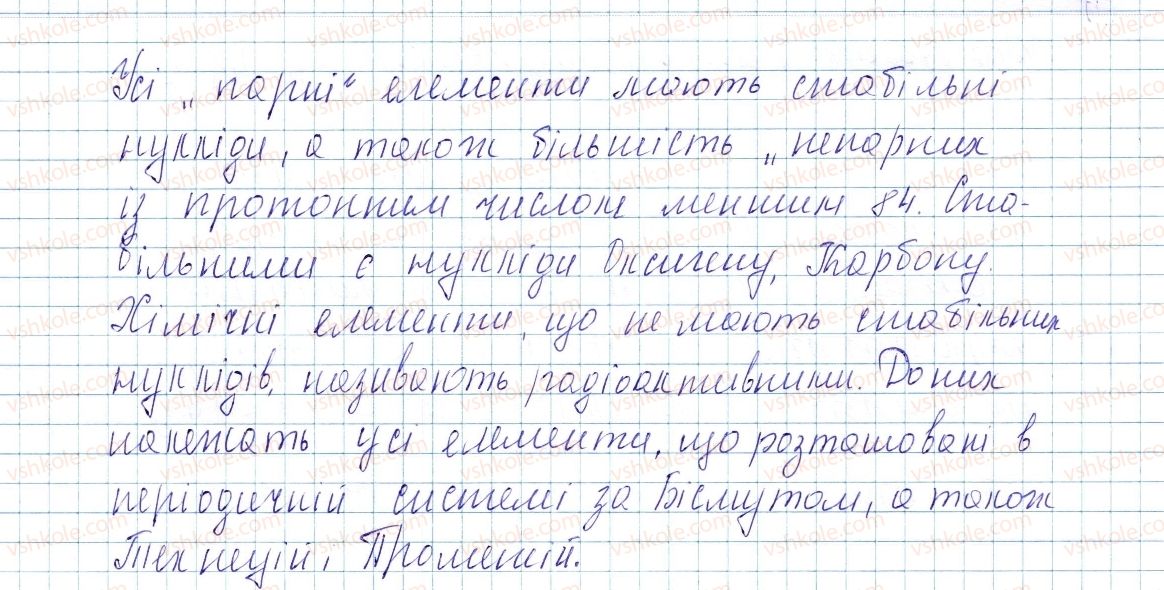 Усі „парні“ елементи мають стабільні
нукліди, а також більшість „непарних
із протонним числом меншим 84. Ста-
більними є нукліди Оксигену, Карбону.
Хімічні елементи, що не мають стабільних
нуклідів, називають радіоактивними. До них
належать усі елементи, що розташовані в
періодичній системі за Бісмутом, а також
Технецій, Прометій.